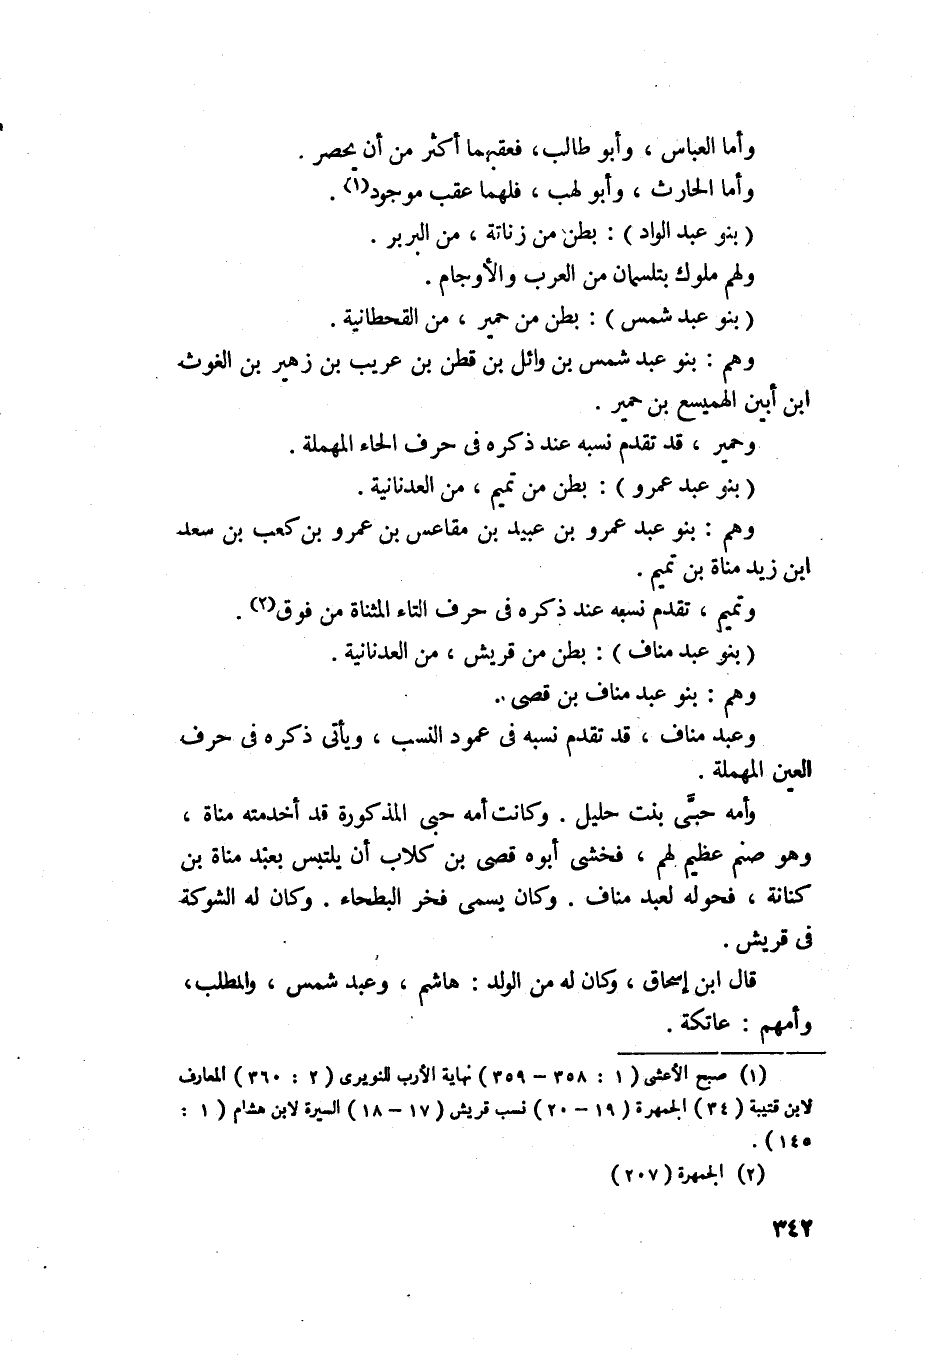 وأما العباس ، وأبو طالب، فعقبهما أكثر من أن يحصر .
وأما الحارث ، وأبو لهب ، فلهما عقب موجود(١) .
( بنو عبد الواد ) : بطن من زناتة ، من البربر .
ولهم ملوك بتلسمان من العرب والأوجام .
( بنو عبد شمس ) : بطن من حمير ، من القحطانية .
وهم : بنو عبد شمس بن وائل بن قطن بن عريب بن زهير بن الغوث
ابن أبين الهميسع بن حمير .
وحمير ، قد تقدم نسبه عند ذكره فى حرف الحاء المهملة .
( بنو عبد عمرو ) : بطن من تميم ، من العدنانية .
وهم : بنو عبد عمرو بن عبيد بن مقاعس بن عمرو بن كعب بن سعد
ابن زيد مناة بن تميم .
وتميم ، تقدم نسبه عند ذكره فى حرف التاء المثناة من فوق(٢) .
( بنو عبد مناف ) : بطن من قريش ، من العدنانية .
وهم : بنو عبد مناف بن قصى .
وعبد مناف ، قد تقدم نسبه فى عمود النسب ، ويأتى ذكره فى حرف
العين المهملة .
وأمه حبَّى بنت حليل . وكانت أمه حبى المذكورة قد أخدمته مناة ،
وهو صنم عظيم لهم ، فخشى أبوه قصى بن كلاب أن يلتبس بعبد مناة بن
كنانة ، فحوله لعبد مناف . وكان يسمى فخر البطحاء . وكان له الشوكة
فى قريش .
قال ابن إسحاق ، وكان له من الولد : هاشم ، وعبد شمس ، والمطلب،
وأمهم : عاتكة .
(١) صبح الأعشى ( ١ : ٣٥٨ – ٣٥٩ ) نهاية الأرب للنويرى ( ٢ : ٣٦٠ ) المعارف
لابن قتيبة ( ٣٤ ) الجمهرة ( ١٩ – ٢٠ ) نسب قريش ( ١٧ – ١٨ ) السيرة لابن هشام ( ١ :
١٤٥ ) .
(٢) الجمهرة ( ٢٠٧ )
٣٤٢